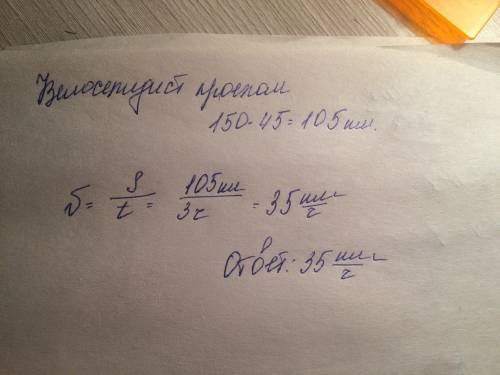 Велосепидист проехал
150-45=105км.
v = S/t = 105км/3ч = 35 км/ч
Ответ: 35 км/ч